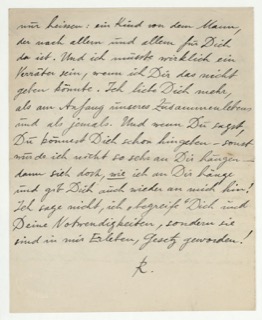 nur heissen: ein Kind von dem Mann,
der nach allem und allem für Dich
da ist. Und ich müsste wirklich ein
Verräter sein, wenn ich Dir das nicht
geben könnte. Ich liebe Dich mehr,
als am Anfang unseres Zusammenlebens
und als jemals. Und wenn Du sagst,
Du könnest Dich schon hingeben – sonst
würde ich nicht so sehr an Dir hängen –
dann sieh doch, wie ich an Dir hänge
und gib Dich auch wieder an mich hin!
Ich sage nicht, ich „begreife“ Dich und
Deine Notwendigkeiten, sondern sie
sind in mir Erleben, Gesetz geworden!
R.